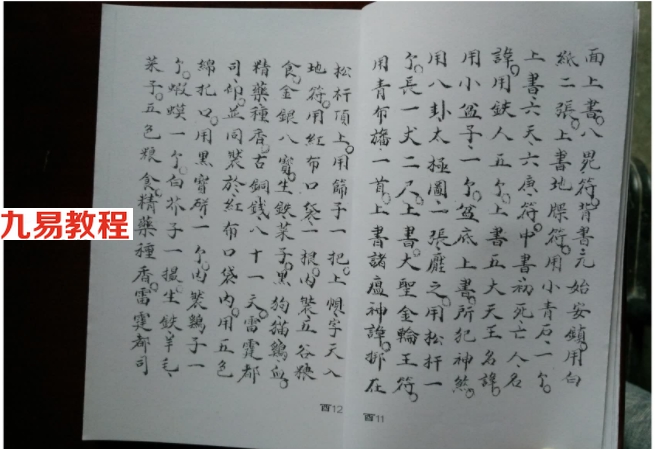 面上書。八毘符。背書元始安鎮。用白
紙二張。上書地牒符。用小青石一个。
上書六天六廣符。中書病死亡人名
諱。用鉄人五个。上書五大天王名諱。
用小盆子一个。盆底上書。所犯神煞。
用八卦太極圖二張。壓之。用松杆一
个。長一丈二尺。上書大聖金輪王符。
用青布旛一首。上書諸瘟神諱。挷在
松杆頂上。用篩子一把。上順字天入
地符。用紅布口袋一根。内裝五谷粮
食。金銀八寳。生鉄菜子。黑狗貓鷄血。
精藥種香。古銅錢八十一文。雷霆都
司印。並同裝於紅布口袋内。用五色
綿扎口。用黑寳瓶一个。内裝鷄子一
个。蝦蟆一个。白芥子一撮。生鉄。羊毛。
菜子。五色粮食。精藥種香。雷霆都司
酉12
酉11
九易教程